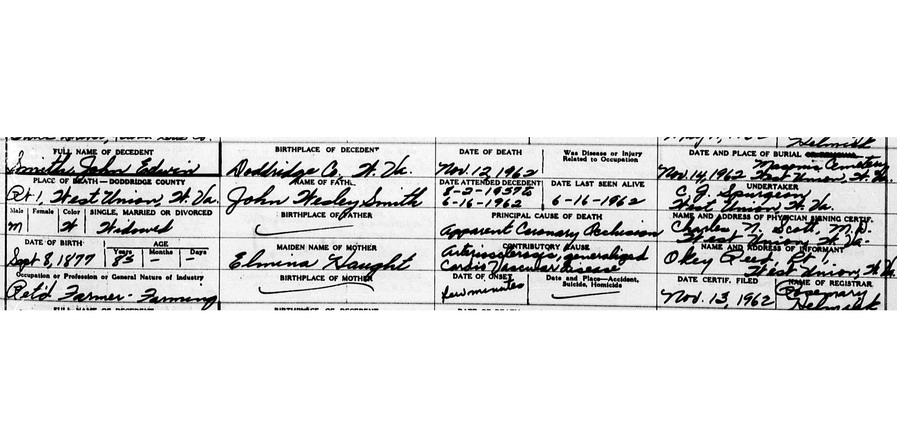 FULL NAME OF DECEDENT
Smith, John Edwin
BIRTHPLACE OF DECEDENT
Doddridge Co. W. Va.
DATE OF DEATH
Nov. 12, 1962
Was Disease or Injury
Related to Occupation
DATE AND PLACE OF BURIAL
Masonic Cemetery
Nov. 14, 1962 West Union, W. Va.
PLACE OF DEATH — DODDRIDGE COUNTY
Rt 1, West Union, W. Va.
NAME OF FATH.
John Wesley Smith
DATE ATTENDED DECEDENT
6-16-1962
DATE LAST SEEN ALIVE
6-16-1962
UNDERTAKER
C. J. Spurgeon
West Union W. Va.
Male Female Color SINGLE, MARRIED OR DIVORCED
M W Widowed
BIRTHPLACE OF FATHER
PRINCIPAL CAUSE OF DEATH
Apparent Coronary Occlusion
NAME AND ADDRESS OF PHYSICIAN SIGNING CERTIF.
Charles N. Scott, M.D.
West Union, W. Va.
DATE OF BIRTH
Sept 8, 1877
AGE
Years Months Days
– –
MAIDEN NAME OF MOTHER
Elmina Haught
CONTRIBUTORY CAUSE
Arteriosclerosis, generalized
Cardio Vascular Disease
NAME AND ADDRESS OF INFORMANT
Okey Reed, Rt 1,
West Union, W. Va
Occupation or Profession or General Nature of Industry
Ret'd Farmer - Farming
BIRTHPLACE OF MOTHER
DATE OF ONSET
few minutes
Date and Place—Accident,
Suicide, Homicide
DATE CERTIF. FILED
Nov. 13, 1962
NAME OF REGISTRAR
Rosemary
Helmick